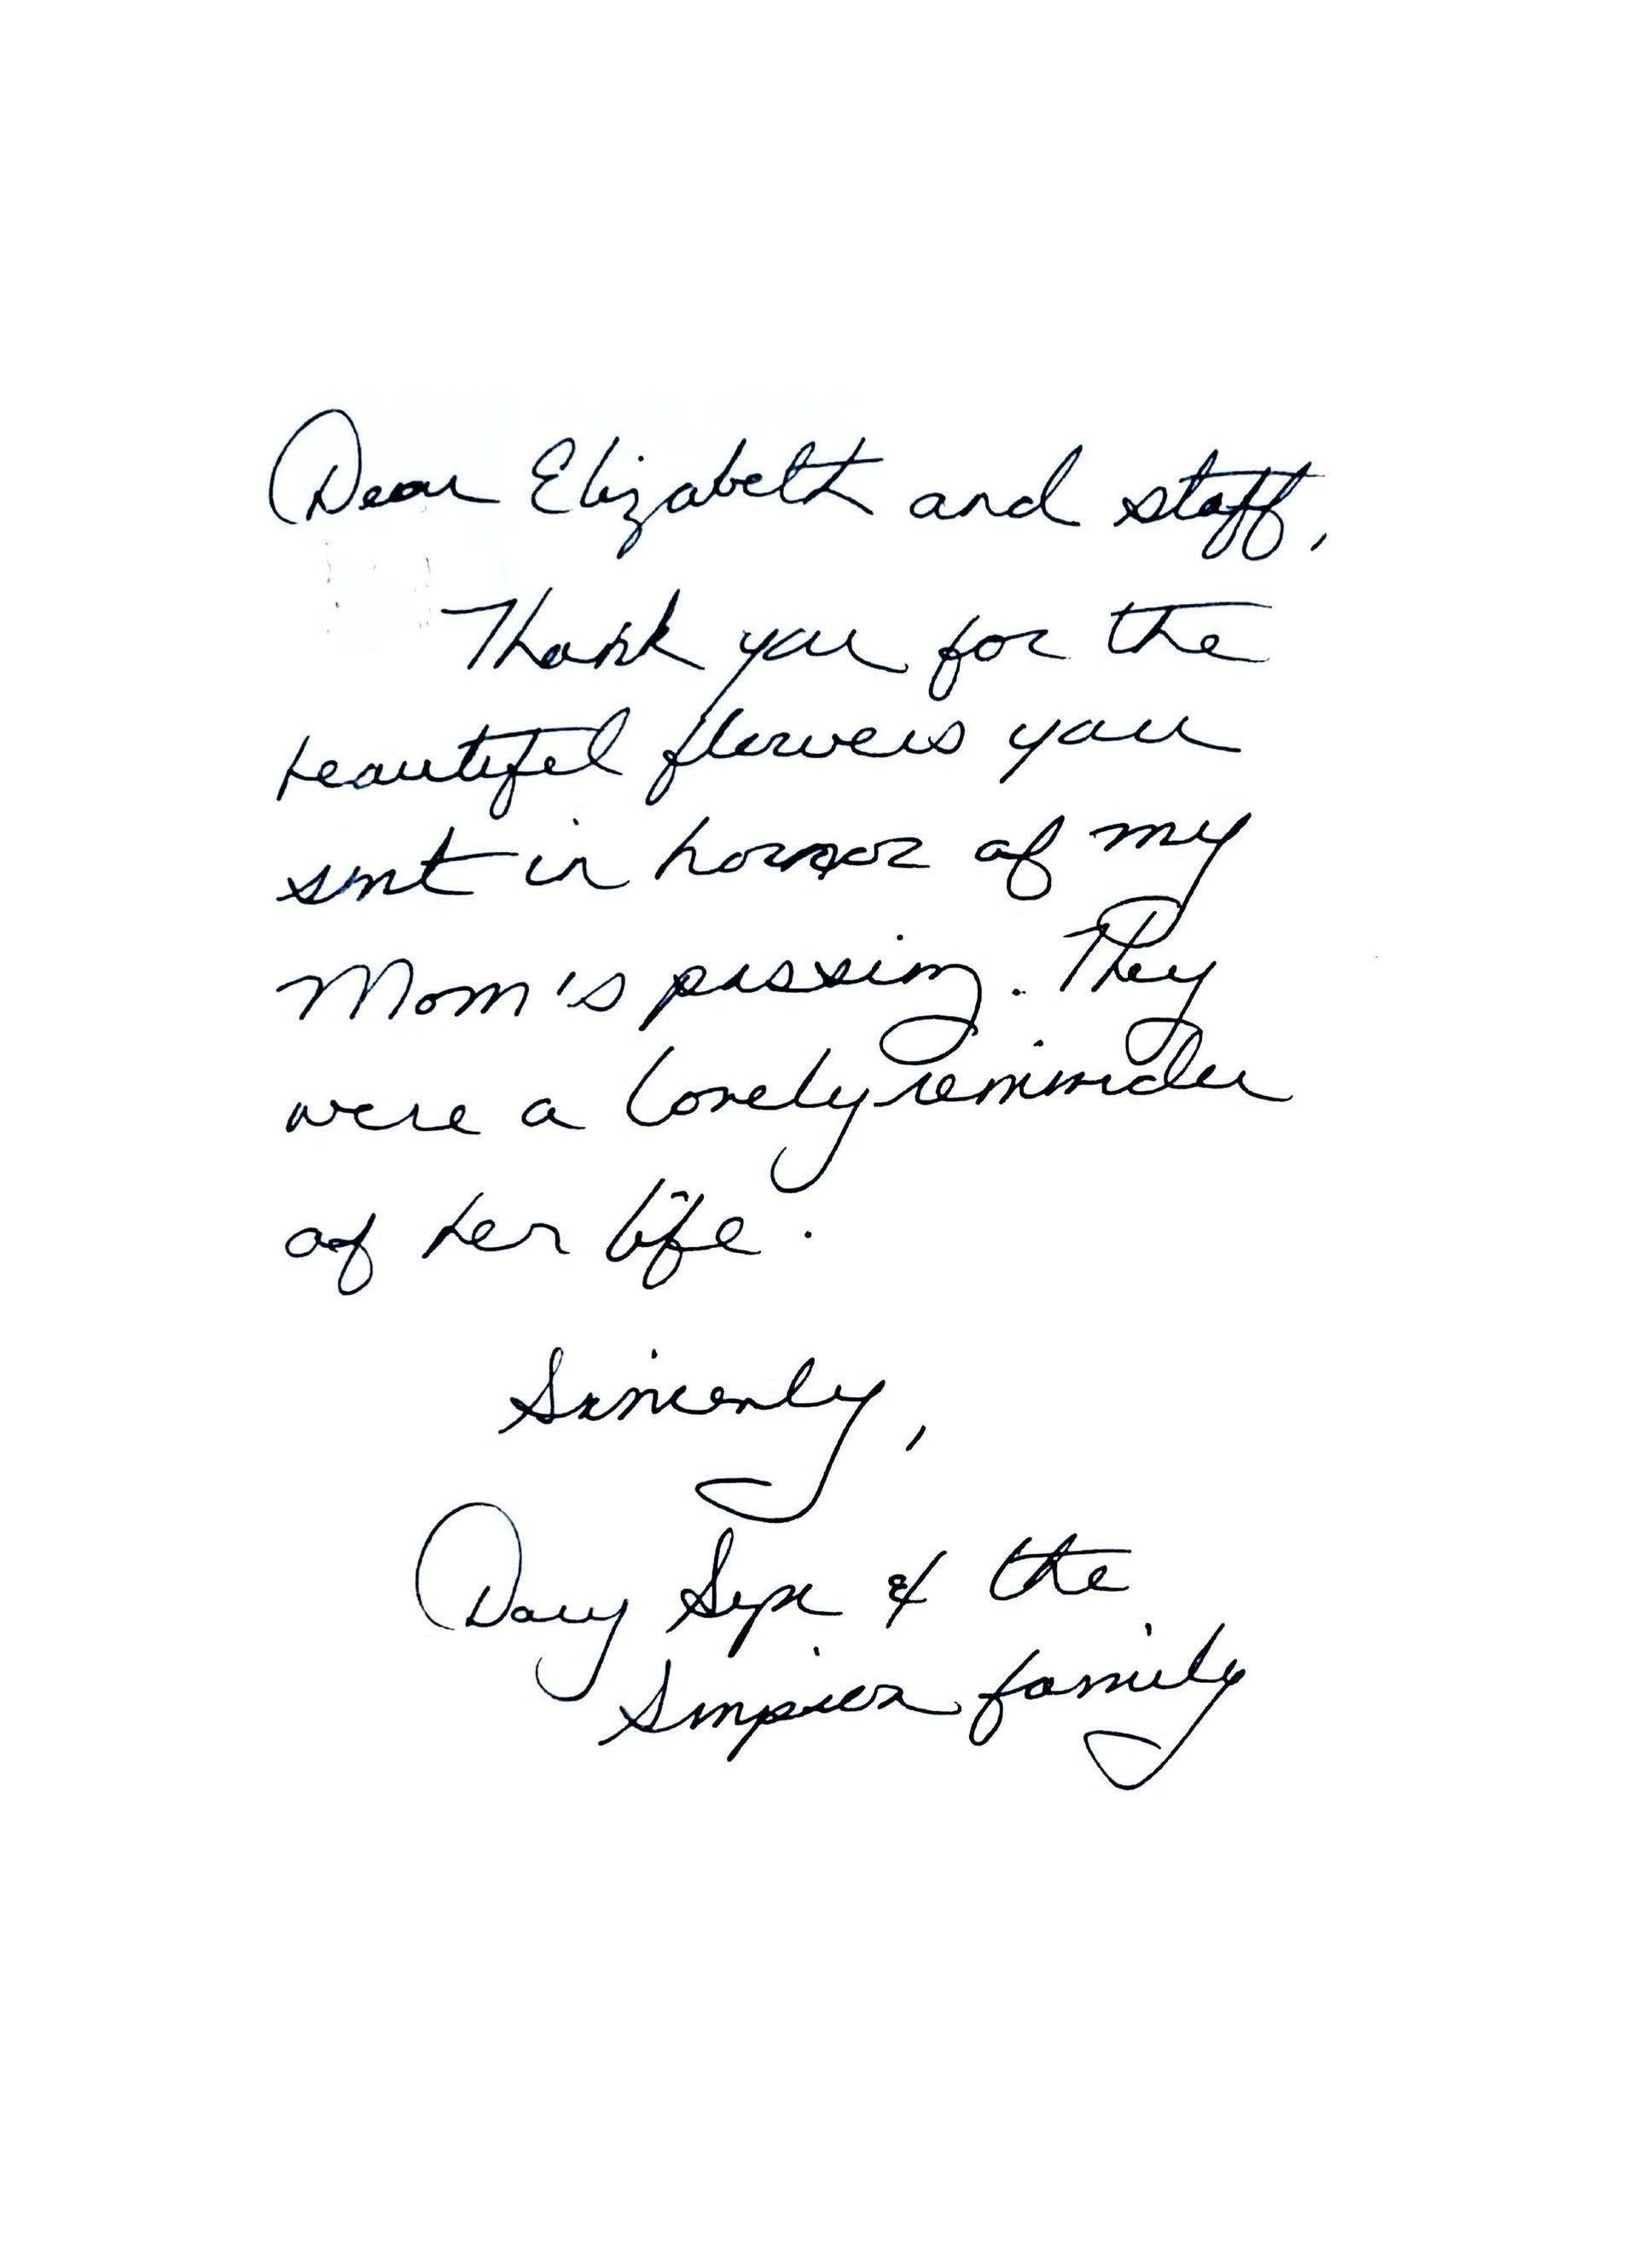 Dear Elizabeth and staff,
Thank you for the
beautiful flowers you
sent in honor of my
Mom's passing. They
were a lovely reminder
of her life.
Sincerely,
& the
family